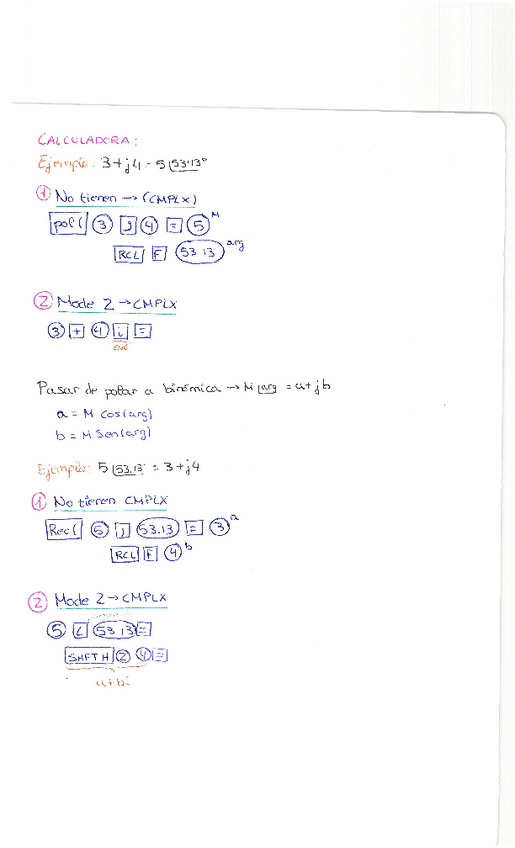 CALCULADORA:
Ejemplo: 3+j4 - 5|53.13°
① No tienen → (CMPLX)
pol( 3 , 4 = 5 M
RCL F 53.13 arg
② Mode 2 → CMPLX
3 + 4 i =
ENG
Pasar de polar a binómica → M|arg = a+jb
a = M Cos(arg)
b = M Sen(arg)
Ejemplo: 5|53.13° = 3+j4
① No tienen CMPLX
Rec( 5 , 53.13 = 3 a
RCL F 4 b
② Mode 2 → CMPLX
5 ∠ 53.13 =
SHIFT H 2 4 =
a+bi